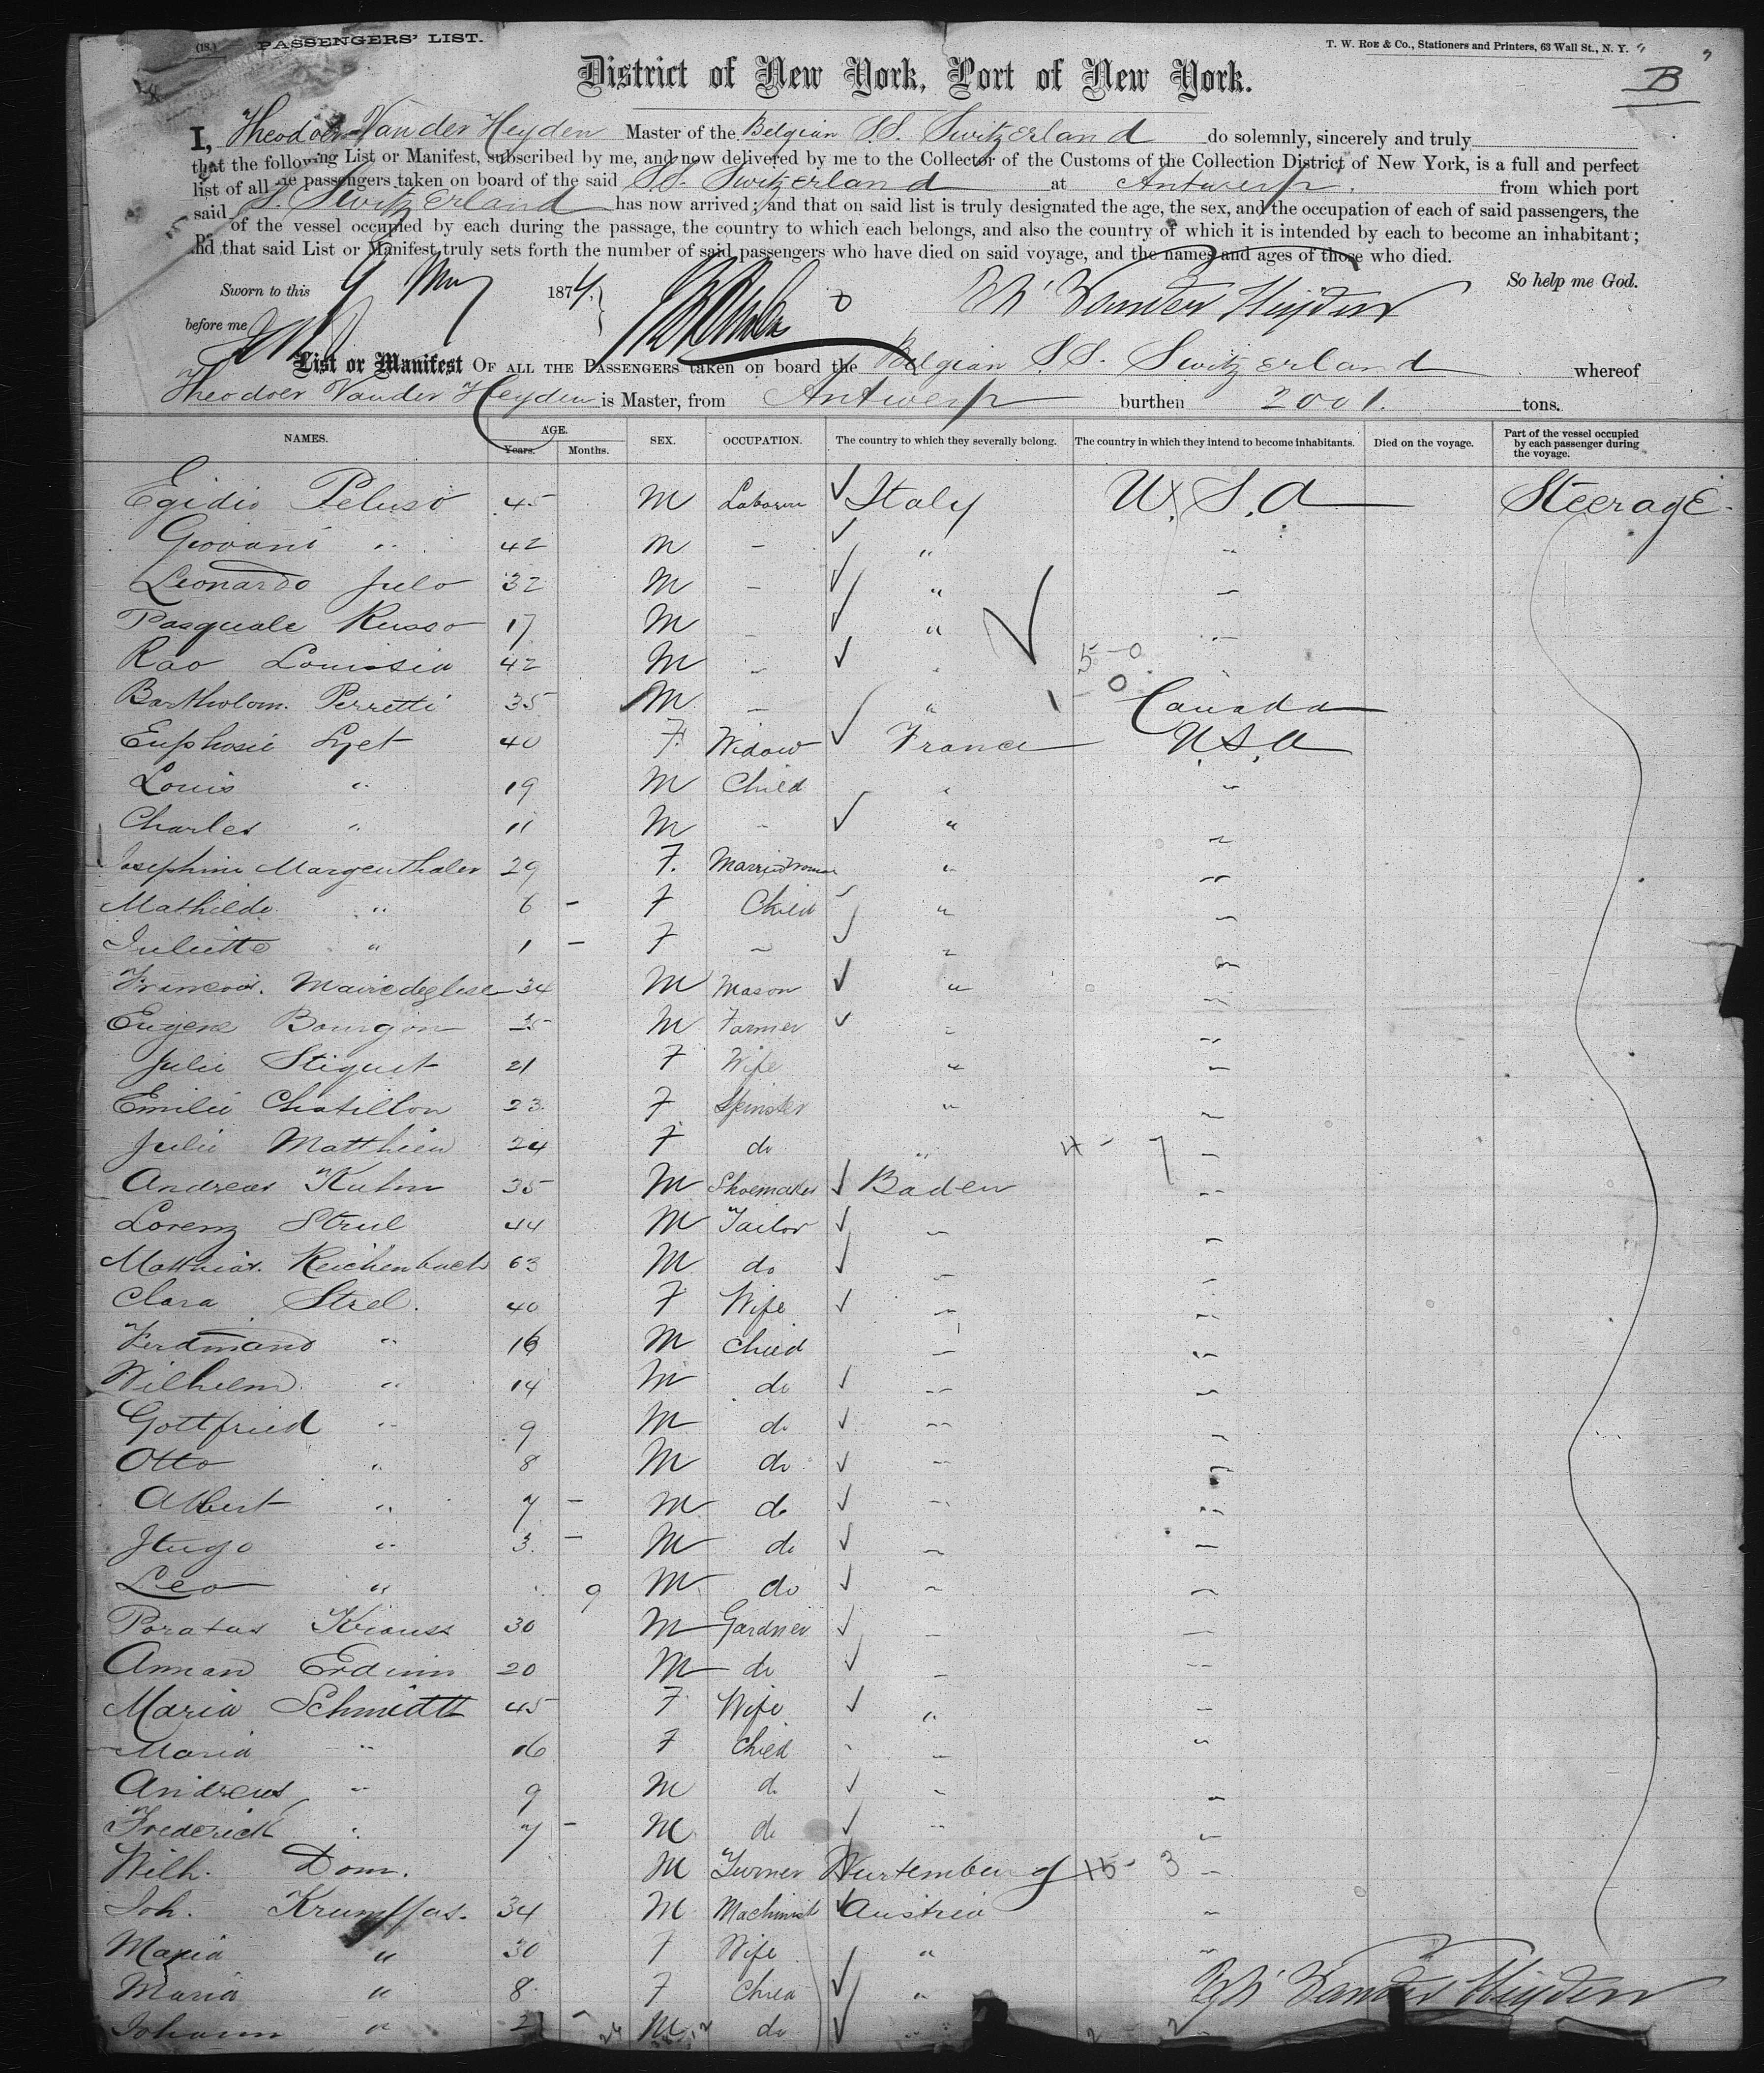 (18.) PASSENGERS' LIST.
T. W. ROE & CO., Stationers and Printers, 63 Wall St., N. Y.
B
District of New York, Port of New York.
I, Theodoer Van der Heyden Master of the Belgian S.S. Switzerland do solemnly, sincerely and truly
that the following List or Manifest, subscribed by me, and now delivered by me to the Collector of the Customs of the Collection District of New York, is a full and perfect
list of all passengers taken on board of the said S.S. Switzerland at Antwerp. from which port
said S. Switzerland has now arrived; and that on said list is truly designated the age, the sex, and the occupation of each of said passengers, the
of the vessel occupied by each during the passage, the country to which each belongs, and also the country of which it is intended by each to become an inhabitant;
and that said List or Manifest truly sets forth the number of said passengers who have died on said voyage, and the names and ages of those who died.
So help me God.
Sworn to this 9 May 1874.
before me
Vander Heyden
List or Manifest OF ALL THE PASSENGERS taken on board the Belgian S.S. Switzerland whereof
Theodoer Vander Heyden is Master, from Antwerp burthen 2001. tons.
NAMES. AGE. Years. Months. SEX. OCCUPATION. The country to which they severally belong. The country in which they intend to become inhabitants. Died on the voyage. Part of the vessel occupied by each passenger during the voyage.
Egidio Peluso 45 M Laborer Italy U.S.A Steerage
Giovani " 42 M - " "
Leonardo Julo 32 M - " "
Pasquale Russo 17 M - " "
Rao Louissia 42 M - " 5-0
Bartholom. Perretti 35 M - " 1-0 Canada
Euphosie Lyet 40 F. Widow France U.S.A
Louis " 19 M Child " "
Charles " 11 M - " "
Josephine Margenthaler 29 F. Married Woman " "
Mathilde " 6 - F Child " "
Juliette " 1 - F - " "
Francois. Mairedeglise 34 M Mason " "
Eugene Bourgon 35 M Farmer " "
Julie Stiquet 21 F Wife " "
Emilie Chatillon 23 F Spinster " "
Julie Matthieu 24 F do " 4-7 "
Andreas Kuhn 35 M Shoemaker Baden "
Lorenz Strel 44 M Tailor " "
Matthias. Reichenbach 63 M do " "
Clara Strel. 40 F Wife " "
Ferdinand " 16 M Child " "
Wilhelm " 14 M do " "
Gottfried " 9 M do " "
Otto " 8 M do " "
Albert " 7 - M do " "
Hugo " 3 - M do " "
Leo " 9 M do " "
Poratus Krauss 30 M Gardner " "
Aman Erdinn 20 M do " "
Maria Schmidtt 45 F Wife " "
Maria " 16 F Child " "
Andreas " 9 M do " "
Frederick " 7 - M do " "
Wilh. Dom. M Turner Wurtemburg 15-3 "
Joh. Krumpfas. 34 M Machinist Austria "
Maria " 30 F Wife " "
Maria " 8 F Child "
Johann " 2 - M do "
Vander Heyden